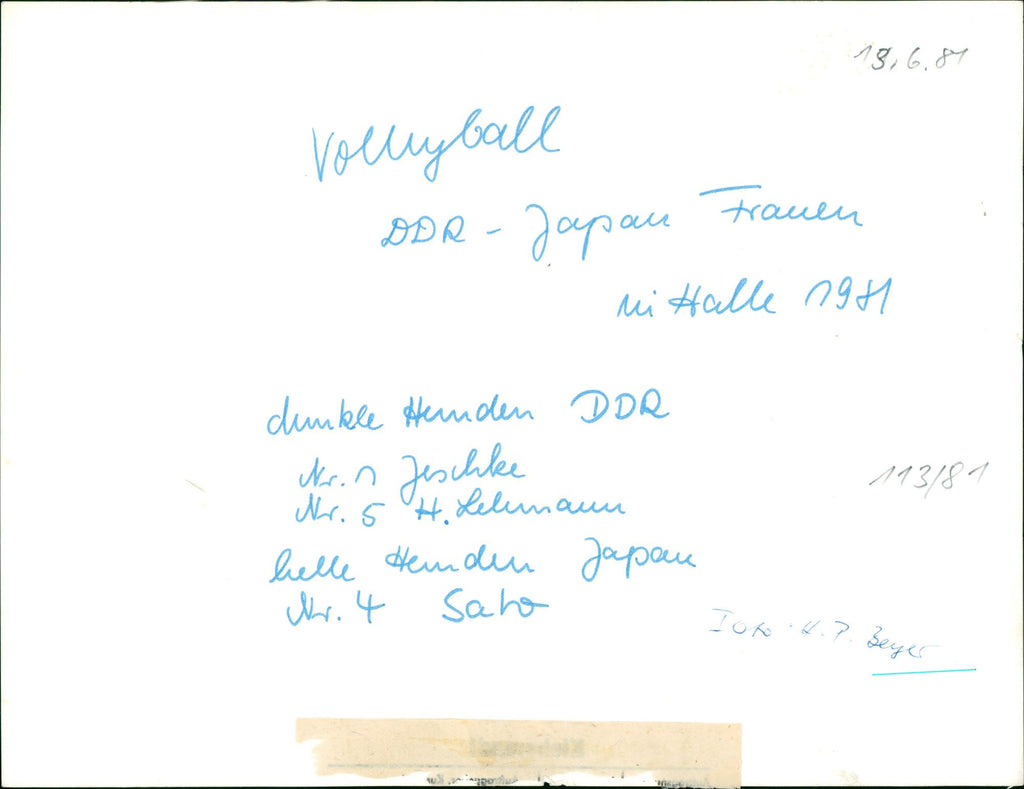 19.6.81
Volleyball
DDR - Japan Frauen
in Halle 1981
dunkle Hemden DDR
Nr. 1 Jeschke
113/81
Nr. 5 H. Lehmann
helle Hemden Japan
Nr. 4 Sato
Foto: H. P. Beyer